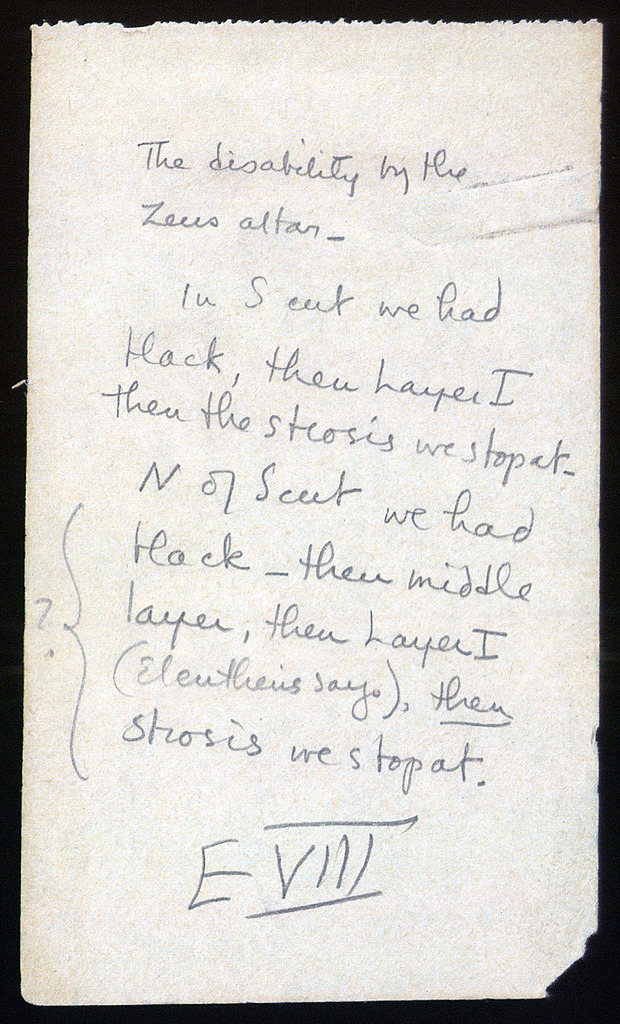 The disability by the
Zeus altar_
In S cut we had
black, then Layer I
then the strosis we stop at_
N of S cut we had
black _ then middle
?
layer, then Layer I
(Eleutheris says), then
strosis we stop at.
E VIII